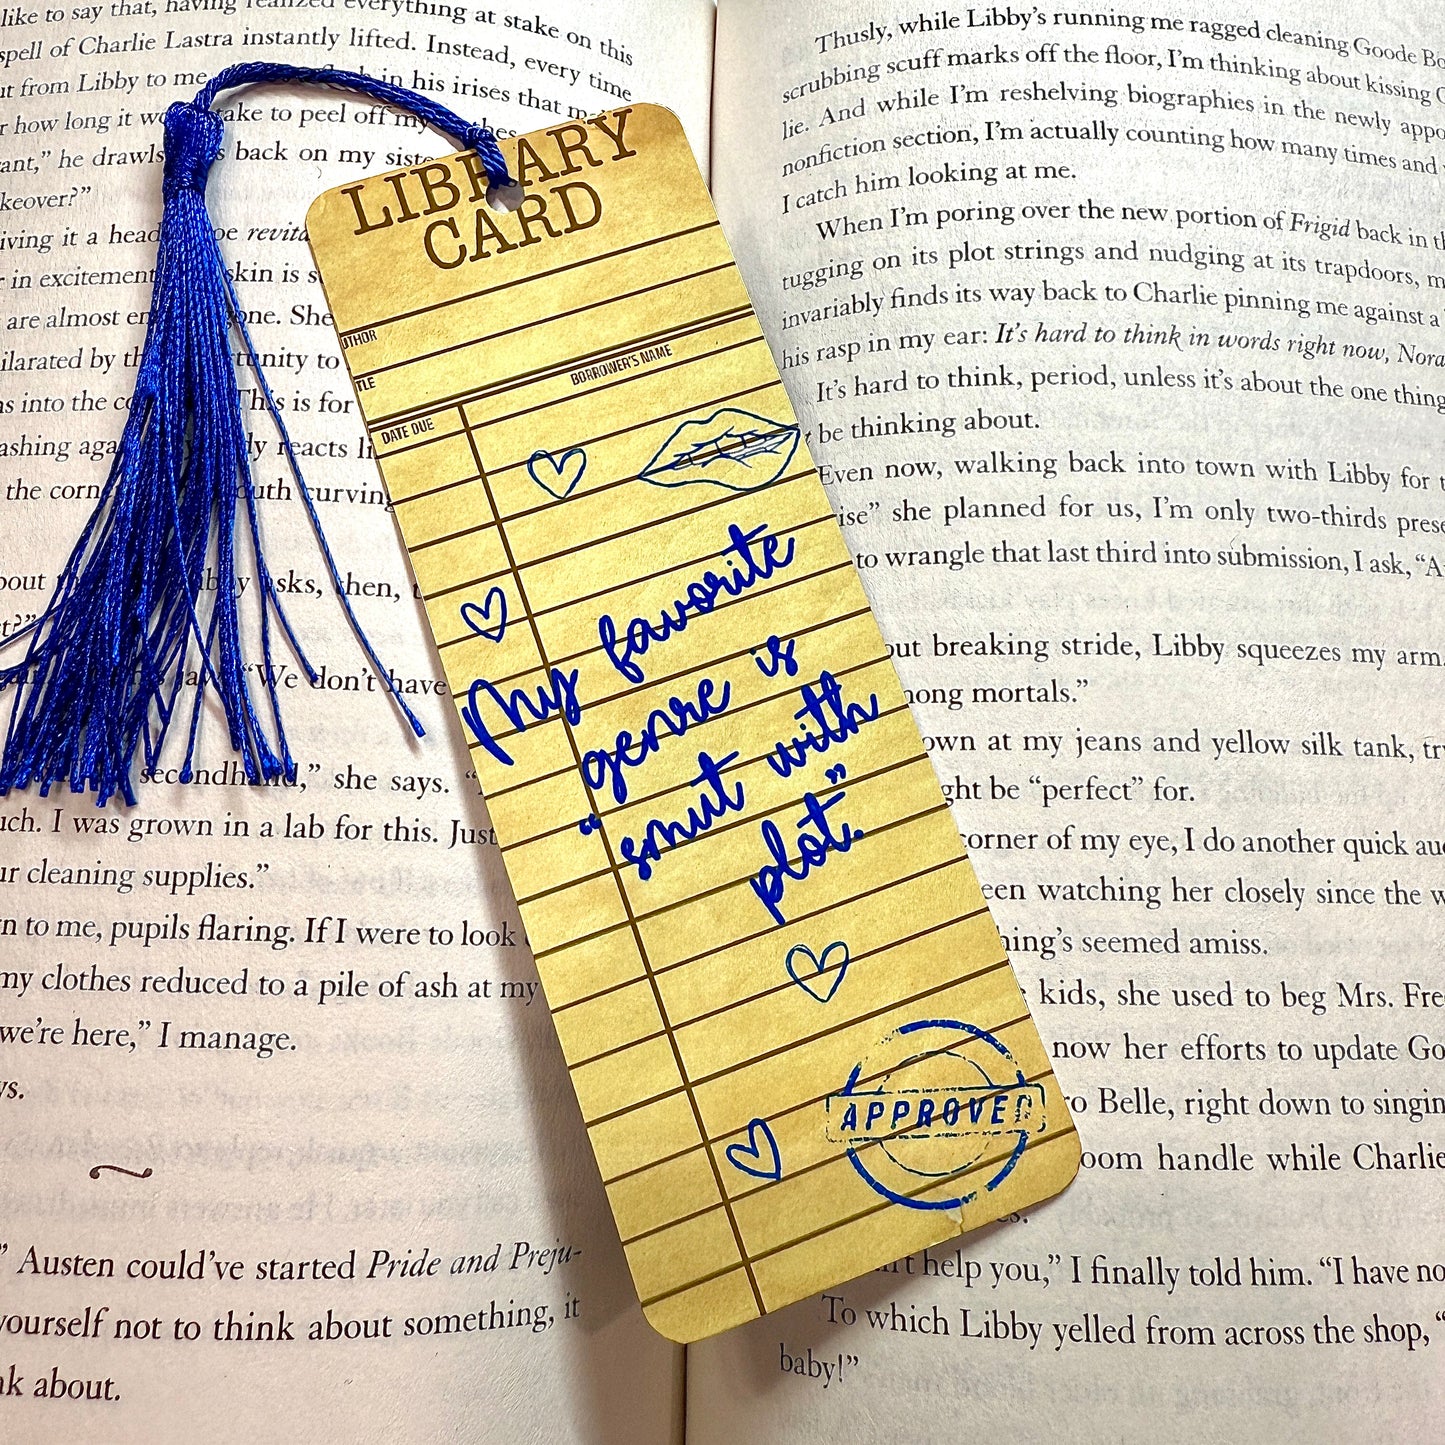 like to say that, having realized everything at stake on this
spell of Charlie Lastra instantly lifted. Instead, every time
from Libby to me, in his irises that
how long it take to peel off my
he drawls back on my
keover?”
giving it a head
in excitement skin is
are almost one. She
ilarated by tunity to
into the This is for
ashing reacts
the curving
asks, then,
“We don’t have
secondhand,” she says.
I was grown in a lab for this. Just
cleaning supplies.”
to me, pupils flaring. If I were to look
my clothes reduced to a pile of ash at my
we’re here,” I manage.
Austen could’ve started Pride and Preju-
yourself not to think about something, it
about.
LIBRARY
CARD
AUTHOR
TITLE
DATE DUE
BORROWER'S NAME
My favorite
genre is
“smut with
plot.”
APPROVED
Thusly, while Libby’s running me ragged cleaning Goode
scrubbing scuff marks off the floor, I’m thinking about kissing
lie. And while I’m reshelving biographies in the newly
nonfiction section, I’m actually counting how many times and
I catch him looking at me.
When I’m poring over the new portion of Frigid back in
tugging on its plot strings and nudging at its trapdoors,
invariably finds its way back to Charlie pinning me against a
his rasp in my ear: It’s hard to think in words right now, Nora
It’s hard to think, period, unless it’s about the one thing
be thinking about.
Even now, walking back into town with Libby for
she planned for us, I’m only two-thirds
to wrangle that last third into submission, I ask,
breaking stride, Libby squeezes my arm.
mortals.”
at my jeans and yellow silk tank,
be “perfect” for.
corner of my eye, I do another quick
watching her closely since the
seemed amiss.
kids, she used to beg Mrs.
now her efforts to update
Belle, right down to
handle while Charlie
help you,” I finally told him. “I have
To which Libby yelled from across the shop,
baby!”